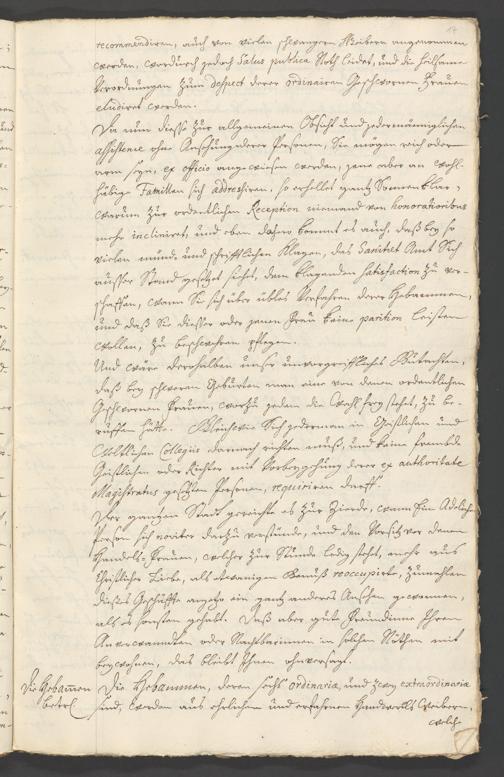 recommendiren, auch von vielen schwangern Weibern angenommen
werden, wordurch jedoch Salus publica Noth leidet, und die heilsame
Verordnungen zum despect derer ordinairen Geschwornen Frauen
eludiret werden.
Da nun diese zur allgemeinen Obsicht und jedermänniglichen
assistence ohne Ansehung derer Personen, Sie mögen reich oder
arm seyn, ex officio angewiesen werden, jene aber an wohl-
häbige Familien sich addreshiren, so erhellet gantz Sonnenklar,
warum zur ordentlichen Reception niemand von honoratioribus
mehr incliniret, und eben dahero kommt es auch, daß bey so
vielen münd- und schrifftlichen Klagen, das Sanitet Amt Sich
ausser Stand gesetzet siehet, dem klagenden satisfaction zu ver-
schaffen, wann Sie sich über übles Verfahren derer Hebammen,
und daß Sie dieser oder jener Frau keine parition leisten
wollen, zu beschwehren pflegen.
Und wäre derohalben unser unvorgreiffliches Gutachten,
daß bey schweren Geburten man eine von denen ordentlichen
Geschwornen Frauen, worzu jedem die Wahl frey stehet, zu be-
ruffen hätte. Gleichwie Sich jederman in Geistlichen und
Weltlichen Collegiis darnach richten muß, und keine frembde
Geistlichen oder Richter mit Vorbeygehung derer ex authoritate
Magistratus gesetzten Personen, requiriren darff.
Der gantzen Stadt gereichte es zur Zierde, wann Ein Adeliche
Person sich noviter darzu verstünde, und den Vorsitz vor denen
Handels-Frauen, welcher zur Stunde ledig stehet, mehr aus
Christlicher Liebe, als etwanigen Genuß reoccupirte, zumahlen
dieses Geschäffte anjetzo ein gantz anderes Ansehen gewonnen,
als es sonsten gehabt. Daß aber gute Freundinne Ihren
Anverwandten oder Nachbarinnen in solchen Nöthen mit
beywohnen, das bleibt Ihnen ohnversagt.
Die Hebamen Die Hebammen, deren sechs ordinaria, und zwey extraordinaria
betrel sind, werden aus ehrlichen und erfahrnen Handwercks Weibern,
welch